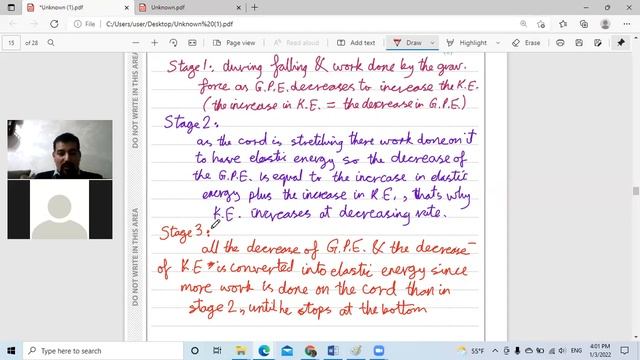 *Unknown (1).pdf
Unknown.pdf
File
C:/Users/user/Desktop/Unknown%20(1).pdf
15
of 28
Draw
Stage 1: during falling & work done by the grav.
force as G.P.E. decreases to increase the K.E.
(the increase in K.E. = the decrease in G.P.E.)
Stage 2:
as the cord is stretching there work done on it
to have elastic energy so the decrease of
the G.P.E. is equal to the increase in elastic
energy plus the increase in K.E., that's why
K.E. increases at decreasing rate.
Stage 3:
all the decrease of G.P.E. & the decrease
of K.E. is converted into elastic energy since
more work is done on the cord than in
stage 2, until he stops at the bottom
DO NOT WRITE IN THIS AREA
DO NOT WRITE IN THIS AREA
55°F
ENG
4:01 PM
1/3/2022